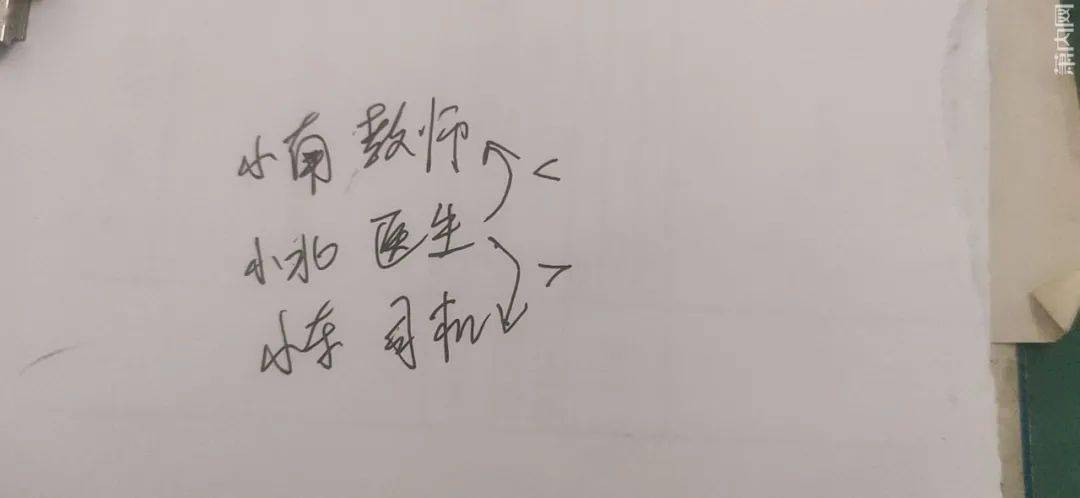 小南 教师
<
小北 医生
>
小东 司机
萧内网